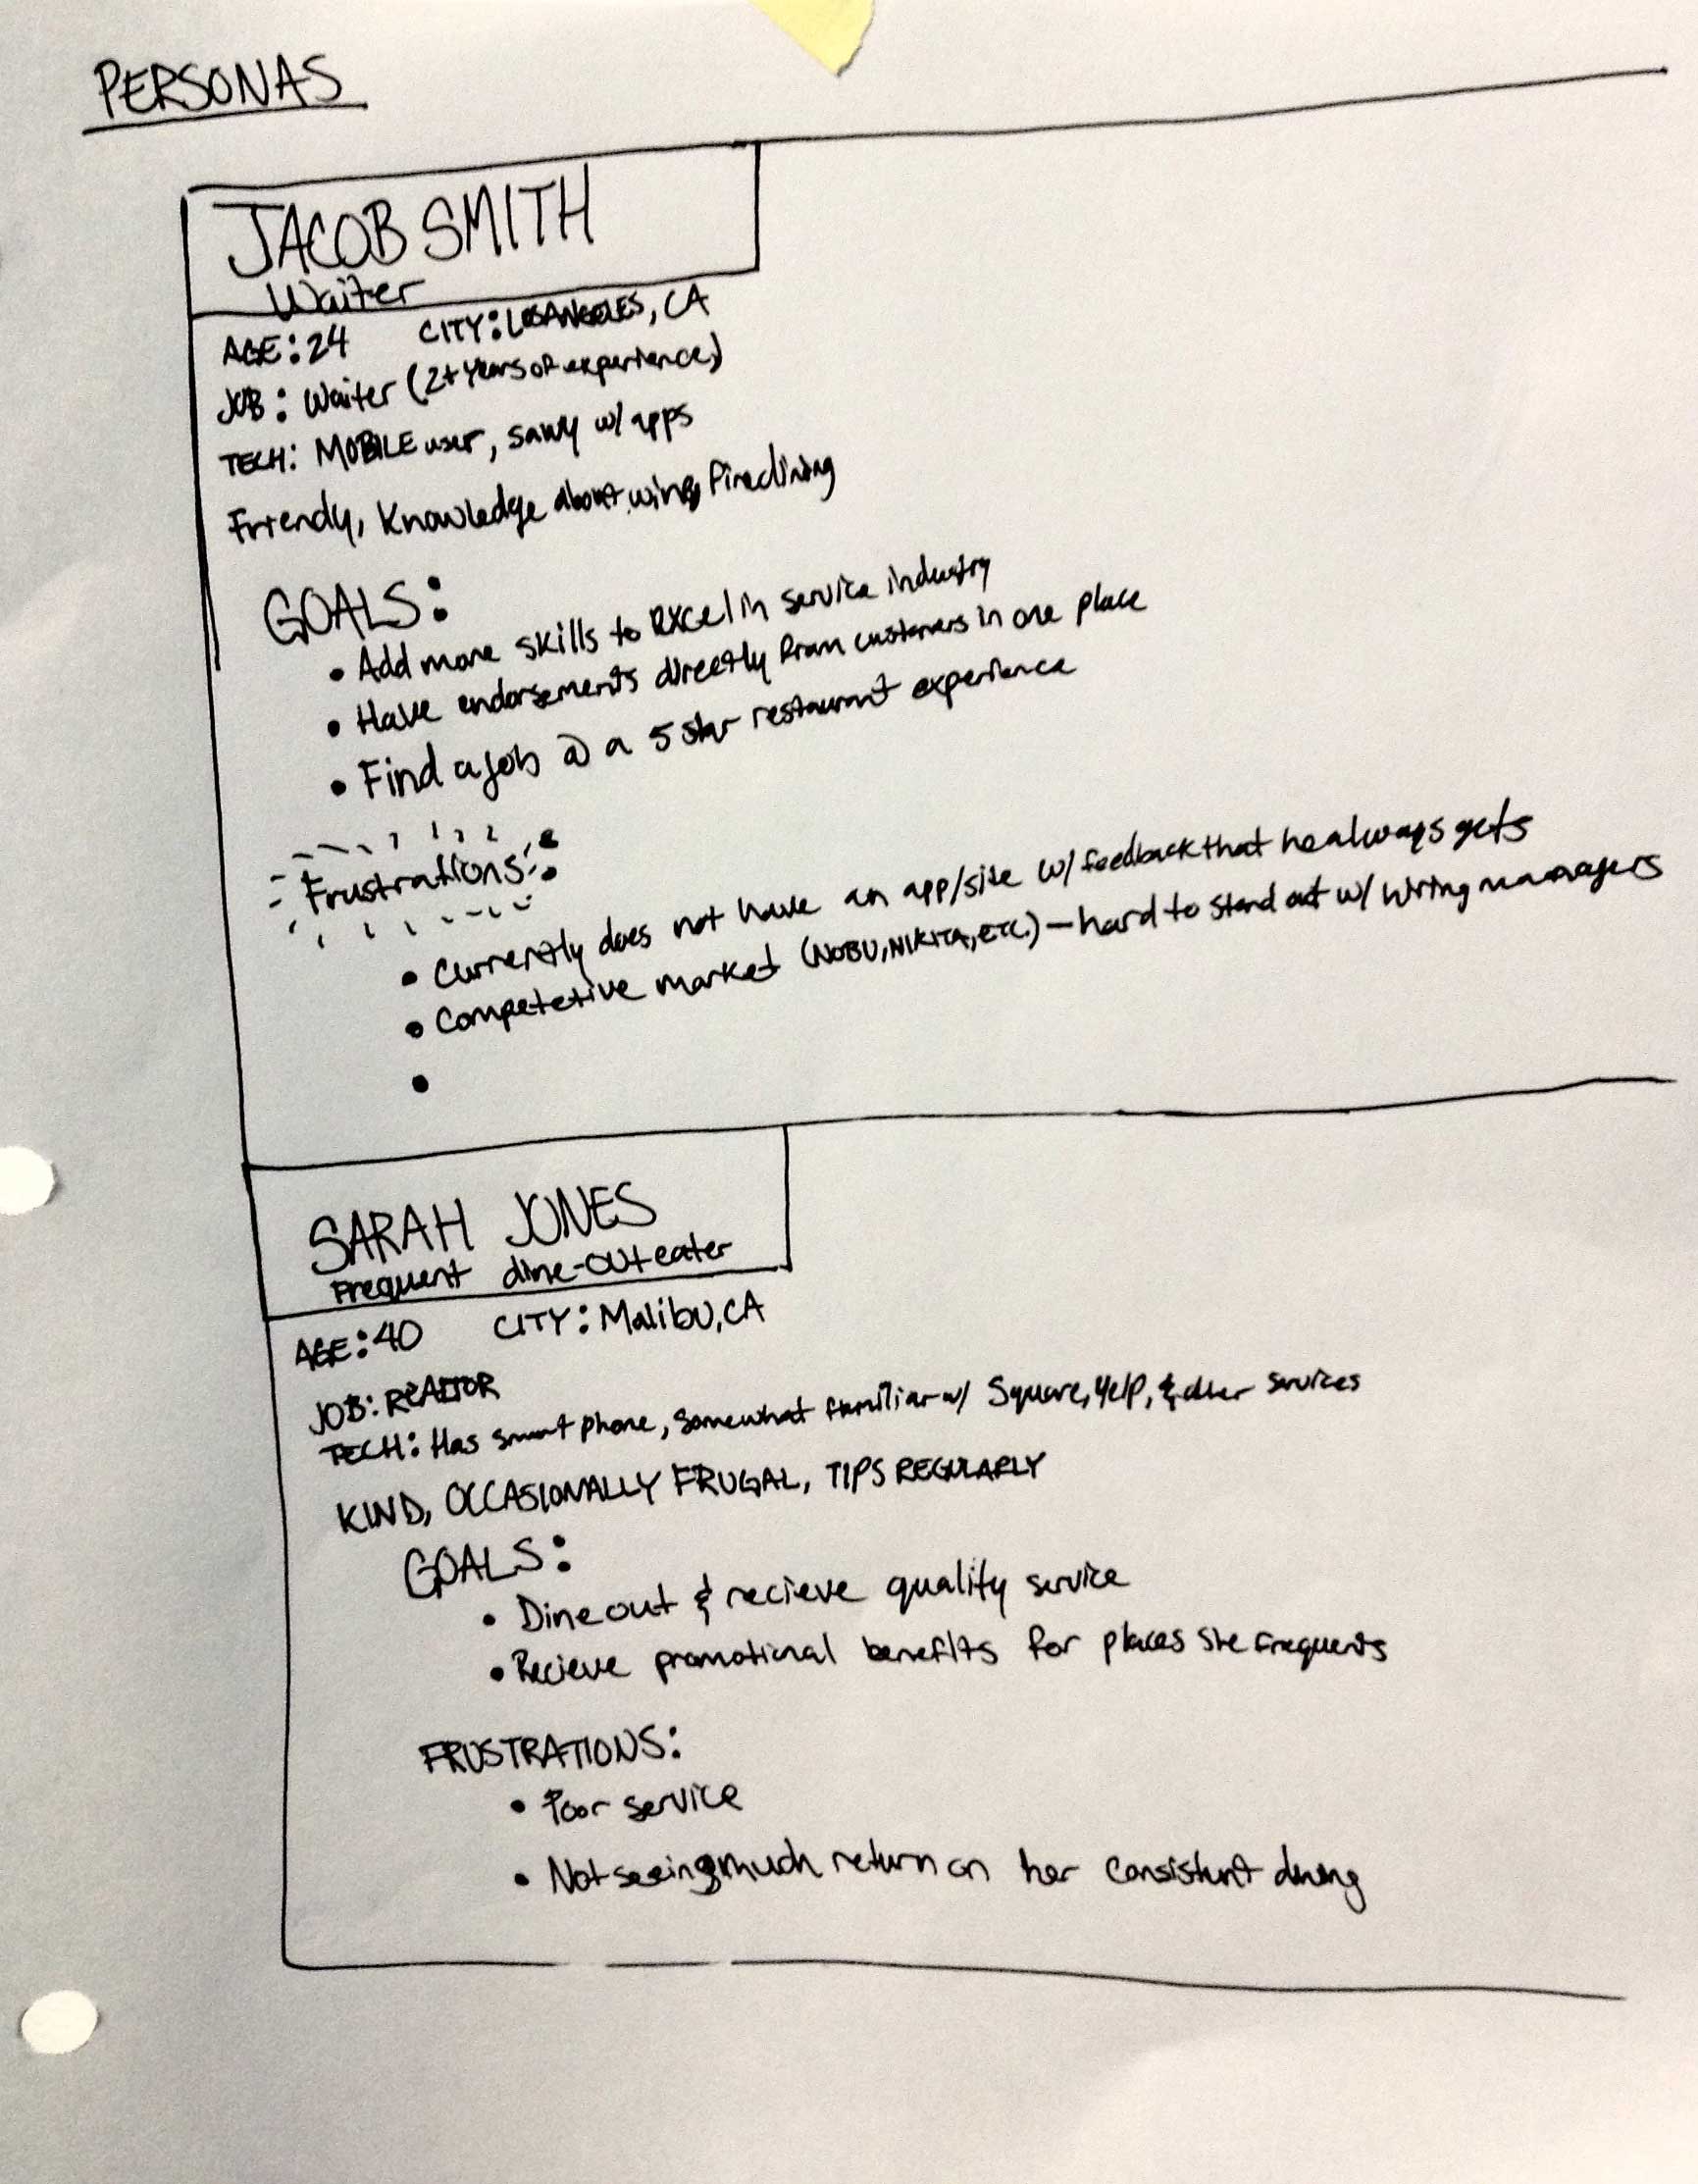 PERSONAS
JACOB SMITH
Waiter
AGE: 24 CITY: LOS ANGELES, CA
JOB: Waiter (2+ years of experience)
TECH: MOBILE user, savvy w/ apps
Friendly, Knowledge about wine, fine dining
GOALS:
• Add more skills to excel in service industry
• Have endorsements directly from customers in one place
• Find a job @ a 5 star restaurant experience
Frustrations:
• Currently does not have an app/site w/ feedback that he always gets
• Competetive market (NOBU, NIKITA, ETC.) - hard to stand out w/ hiring managers
•
SARAH JONES
Frequent dine-out eater
AGE: 40 CITY: Malibu, CA
JOB: REALTOR
TECH: Has smart phone, somewhat familiar w/ Square, Yelp, & other services
KIND, OCCASIONALLY FRUGAL, TIPS REGULARLY
GOALS:
• Dine out & recieve quality service
• Recieve promotional benefits for places she frequents
FRUSTRATIONS:
• Poor service
• Not seeing much return on her consistent dining